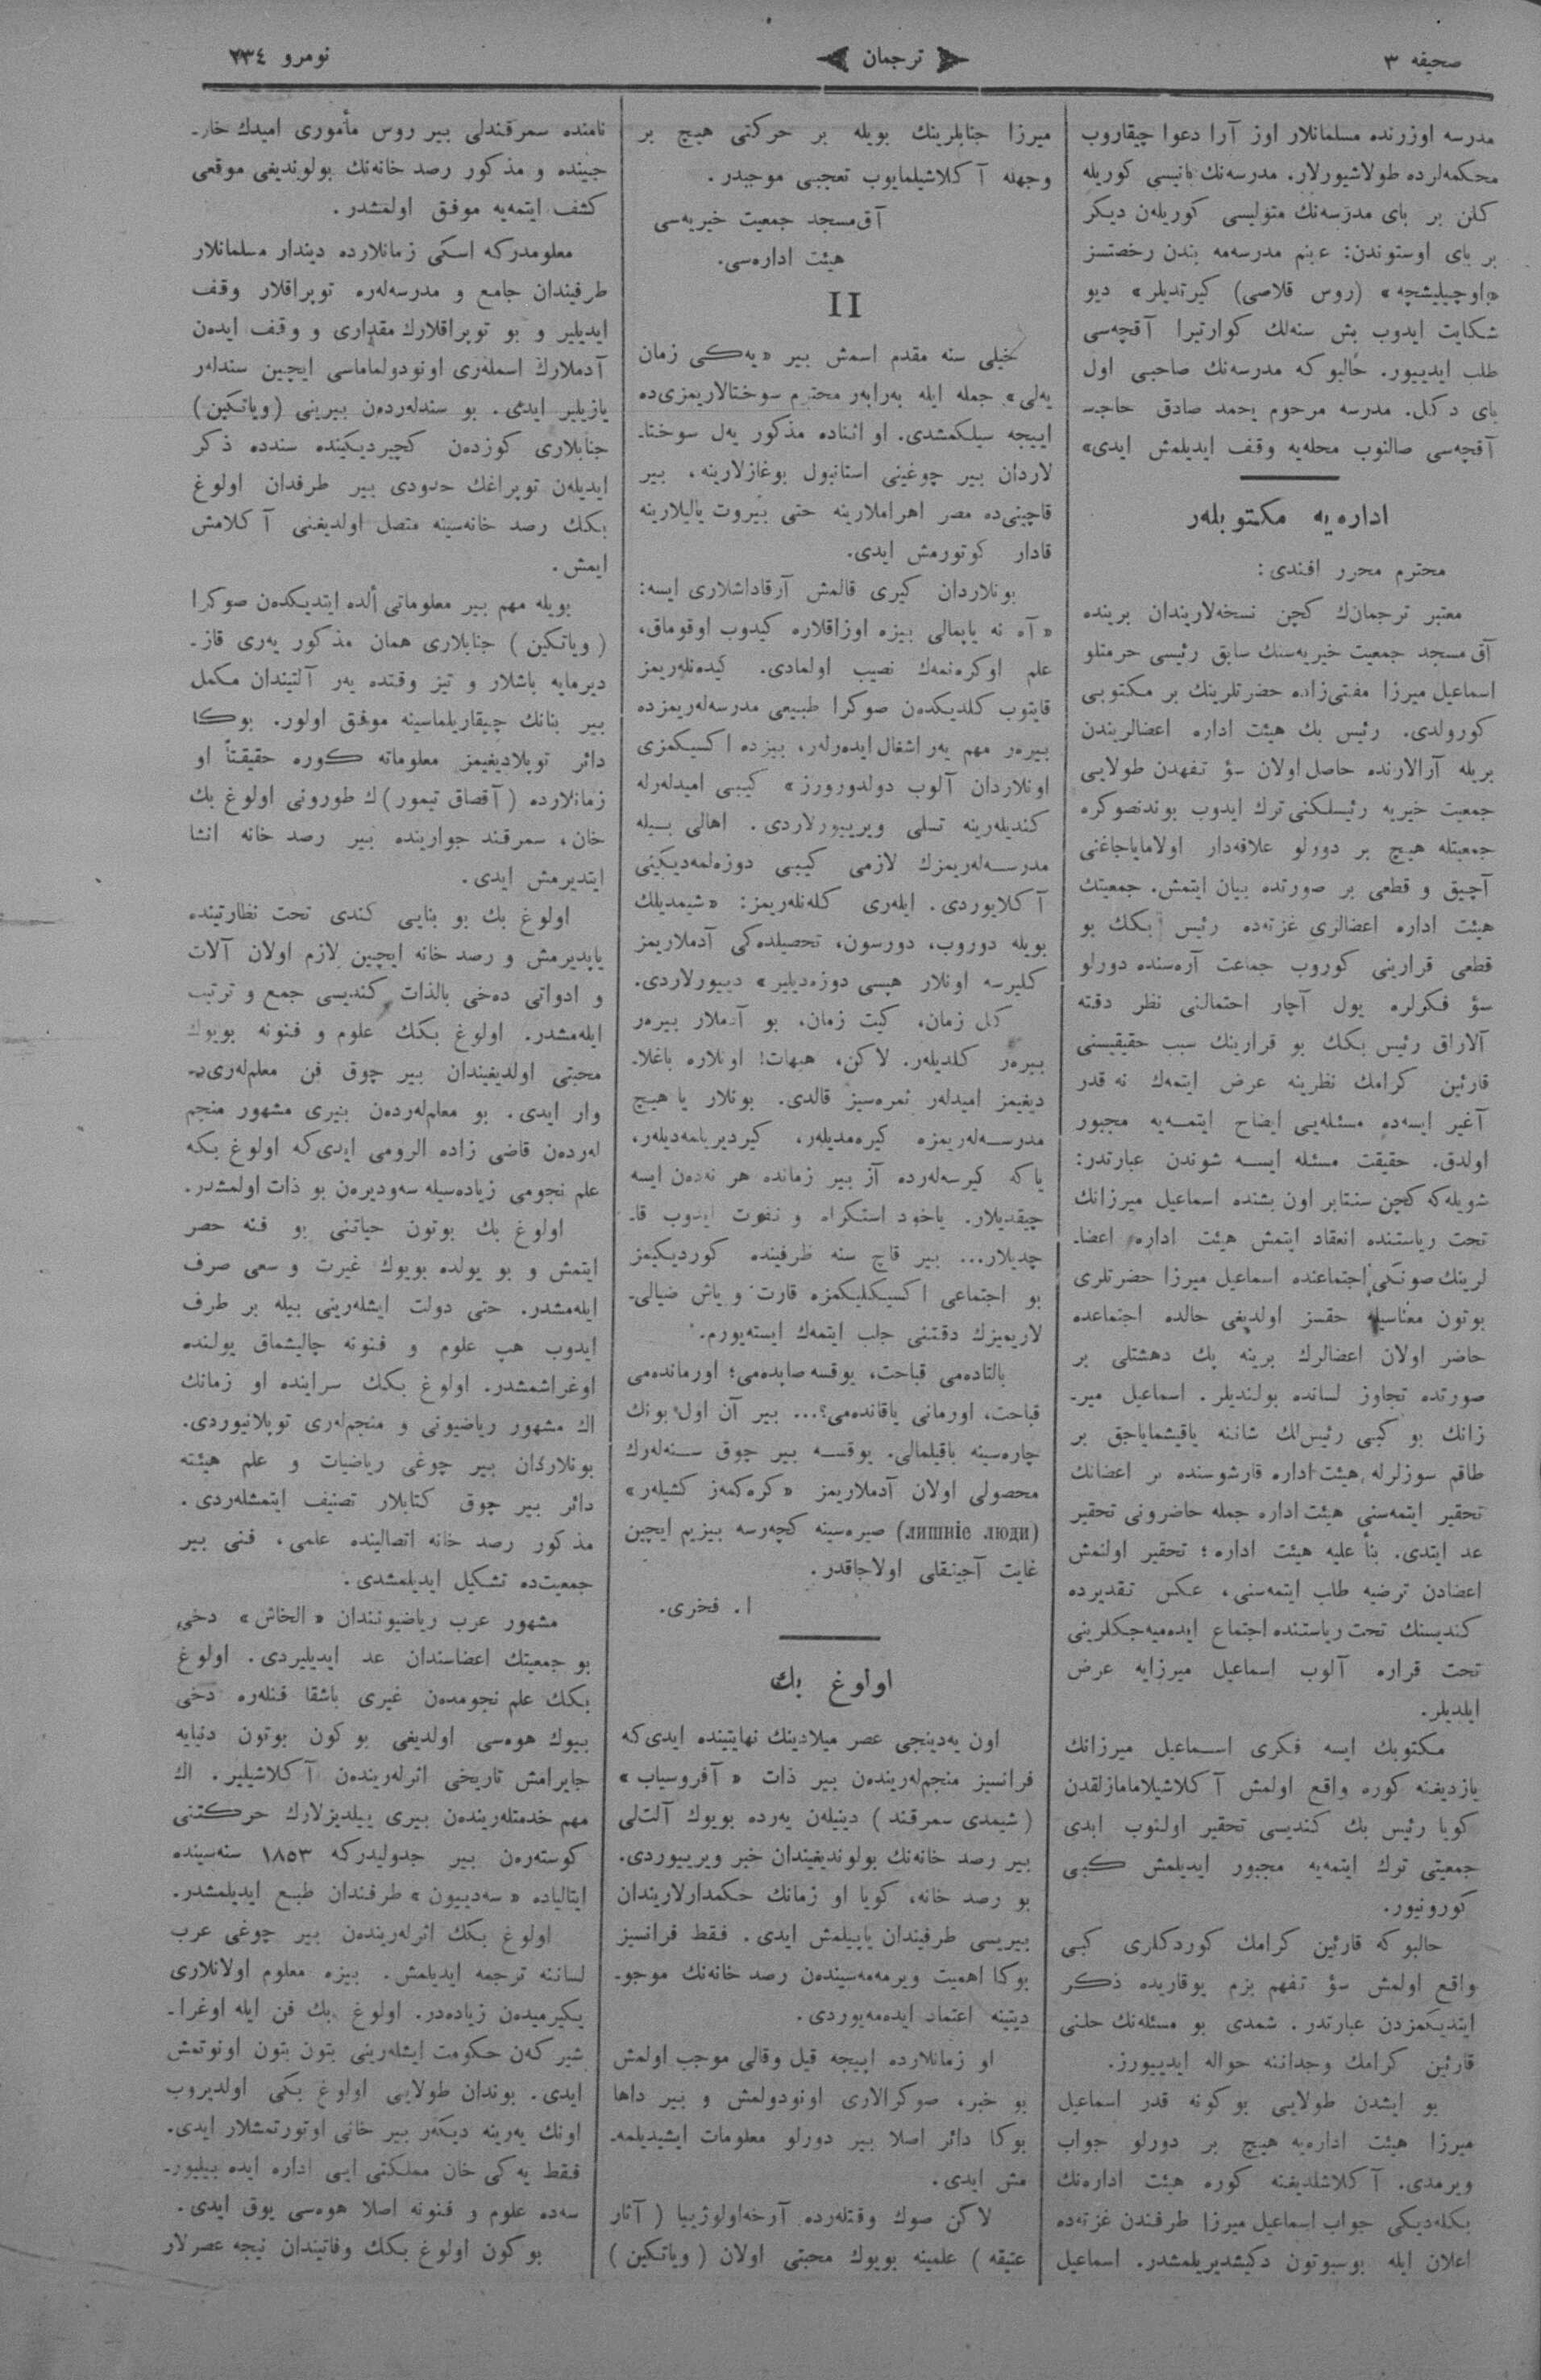 صحیفه ٣
ترجمان
نومرو ٢٣٤
مدرسه اوزرنده مسلمانلار اوز آرا دعوا چیقاروب
محکمه‌لرده طولاشیورلار. مدرسه‌نك بانیسی کوریله
کلن بر بای مدرسه‌نك متولیسی کوریله‌ن دیکر
بر بای اوستوندن: عبنم مدرسه‌مه بندن رخصتسز
«اوچیلیشچه» (روس قلاصی) کیرتدیلر» دیو
شکایت ایدوب بش سنه‌لك کوارتیرا آقچه‌سی
طلب ایدییور. حالبو که مدرسه‌نك صاحبی اول
بای دکل. مدرسه مرحوم یحمد صادق حاجـ
آقچه‌سی صالنوب محله‌یه وقف ایدیلمش ایدی»
اداره‌یه مکتوبلەر
محترم محرر افندی:
معتبر ترجمان‌ك کچن نسخه‌لاریندان برینده
آق مسجد جمعیت خیریه‌سنك سابق رئیسی حرمتلو
اسماعیل میرزا مفتی‌زاده حضرتلرینك بر مکتوبی
کورولدی. رئیس بك هیئت اداره اعضالریندن
بریله آرالارنده حاصل اولان سؤ تفهدن طولایی
جمعیت خیریه رئیسلکنی ترك ایدوب بوندنصوکره
جمعیتله هیچ بر دورلو علاقه‌دار اولامایاجاغنی
آچیق و قطعی بر صورتده بیان ایتمش. جمعیتك
هیئت اداره اعضالری غزته‌ده رئیس بکك بو
قطعی قرارینی کوروب جماعت آره‌سنده دورلو
سؤ فکرلره یول آچار احتمالنی نظر دقته
آلاراق رئیس بکك بو قرارینك سبب حقیقیسنی
قارئین کرامك نظرینه عرض ایتمه‌ك نه قدر
آغیر ایسه‌ده مسئله‌یی ایضاح ایتمـه‌یه مجبور
اولدق. حقیقت مسئله ایسـه شوندن عبارتدر:
شویله‌که کچن سنتابر اون بشنده اسماعیل میرزانك
تحت ریاستنده انعقاد ایتمش هیئت اداره اعضاـ
لرینك صونکی اجتماعنده اسماعیل میرزا حضرتلری
بوتون معناسیله حقسز اولدیغی حالده اجتماعده
حاضر اولان اعضالرك برینه پك دهشتلی بر
صورتده تجاوز لسانده بولندیلر. اسماعیل میرـ
زانك بو کبی رئیس‌لك شاننه یاقیشمایاجق بر
طاقم سوزلرله هیئت اداره قارشوسنده بر اعضانك
تحقیر ایتمه‌سنی هیئت اداره جمله حاضرونی تحقیر
عد ایتدی. بناً علیه هیئت اداره؛ تحقیر اولنمش
اعضادن ترضیه طلب ایتمه‌سنی، عکس تقدیرده
کندیسنك تحت ریاستنده اجتماع ایده‌میه‌جکلرینی
تحت قراره آلوب اسماعیل میرزایه عرض
ایلدیلر.
مکتوبك ایسه فکری اسـماعیل میرزانك
یازدیغنه کوره واقع اولمش آکلاشیلامامازلقدن
کویا رئیس بك کندیسی تحقیر اولنوب ابدی
جمعیتی ترك ایتمه‌یه مجبور ایدیلمش کبی
کورونیور.
حالبو که قارئین کرامك کوردکلری کبی
واقع اولمش سؤ تفهم بزم یوقاریده ذکر
ایتدیکمزدن عبارتدر. شمدی بو مسئله‌نك حلنی
قارئین کرامك وجداننه حواله ایدییورز.
بو ایشدن طولایی بو کونه قدر اسماعیل
میرزا هیئت اداره‌یه هیچ بر دورلو جواب
ویرمدی. آکلاشلدیغنه کوره هیئت اداره‌نك
بکله‌دیکی جواب اسماعیل میرزا طرفندن غزته‌ده
اعلان ایله بوسبوتون دکیشدیریلمشدر. اسماعیل
میرزا جنابلرینك بویله بر حرکتی هیچ بر
وجهله آکلاشیلمایوب تعجبی موجبدر.
آق‌مسجد جمعیت خیریه‌سی
هیئت اداره‌سی.
II
خیلی سنه مقدم اسمش بیر «یه‌کی زمان
یه‌لی» جمله ایله به‌رابه‌ر محترم سوختالاریمزی‌ده
اییجه سیلکمشدی. او اثناده مذکور یه‌ل سوختاـ
لاردان بیر چوغینی استانبول بوغازلارینه، بیر
قاچینی‌ده مصر اهراملارینه حتی بیروت یالیلارینه
قادار کوتورمش ایدی.
بونلاردان کیری قالمش آرقاداشلاری ایسه:
«آه نه یاپمالی بیزه اوزاقلاره کیدوب اوقوماق،
علم اوکره‌نمه‌ك نصیب اولمادی. کیده‌نله‌ریمز
قایتوب کلدیکده‌ن صوکرا طبیعی مدرسه‌له‌ریمزده
بیره‌ر مهم یه‌ر اشغال ایده‌رله‌ر، بیزده اکسیکمزی
اونلاردان آلوب دولدورورز» کیبی امیدله‌رله
کندیله‌رینه تسلی ویرییورلاردی. اهالی بـیله
مدرسـه‌له‌ریمزك لازمی کیبی دوزه‌لمه‌دیکینی
آکلایوردی. ایله‌ری کله‌نله‌ریمز: «شیمدیلك
بویله دوروب، دورسون، تحصیلده‌کی آدملاریمز
کلیرسه اونلار هپسی دوزه‌دیلیر» دییورلاردی.
کل زمان، کیت زمان، بو آدملار بیره‌ر
بیره‌ر کلدیله‌ر. لاکن، هیهات! اونلاره باغلاـ
دیغیمز امیدله‌ر ثمره‌سیز قالدی. بونلار یا هیچ
مدرسـه‌له‌ریمزه کیره‌مدیله‌ر، کیردیریلمه‌دیله‌ر،
یاکه کیرسه‌له‌رده آز بیر زمانده هر نه‌دەن ایسه
چیقدیلار. یاخود استکراه و نفرت ایدوب قاـ
چدیلار... بیر قاچ سنه ظرفینده کوردیکیمز
بو اجتماعی اکسیکلیکمزه قارت و یاش ضیالیـ
لاریمیزك دقتنی جلب ایتمه‌ك ایسته‌یورم.
بالتاده‌می قباحت، یوقسه صاپده‌می؛ اورمانده‌می
قباحت، اورمانی یاقانده‌می؟... بیر آن اول بونك
چاره‌سینه باقیلمالی. یوقسـه بیر چوق سـنه‌له‌رك
محصولی اولان آدملاریمز «کره‌کمه‌ز کشیله‌ر»
(лишніе люди) صیره‌سینه کچه‌رسه بیزیم ایچین
غایت آجینقلی اولاجاقدر.
ا. فخری.
اولوغ بك
اون یه‌دینجی عصر میلادینك نهایتینده ایدی‌که
فرانسیز منجم‌له‌رینده‌ن بیر ذات «آفروسیاب»
(شیمدی سمرقند) دینیله‌ن یه‌رده بویوك آلت‌لی
بیر رصد خانه‌نك بولوندیغیندان خبر ویرییوردی.
بو رصد خانه، کویا او زمانك حکمدارلاریندان
بیریسی طرفیندان یاپیلمش ایدی. فقط فرانسیز
بوکا اهمیت ویرمه‌مه‌سینده‌ن رصد خانه‌نك موجوـ
دیتینه اعتماد ایده‌مه‌یوردی.
او زمانلارده اییجه قیل وقالی موجب اولمش
بو خبر، صوکرالاری اونودولمش و بیر داها
بوکا دائر اصلا بیر دورلو معلومات ایشیدیلمه‌ـ
مش ایدی.
لاکن صوك وقتله‌رده آرخه‌اولوژییا (آثار
عتیقه) علمینه بویوك محبتی اولان (ویاتکین)
نامنده سمرقندلی بیر روس مأموری امیدك خارـ
جینده و مذکور رصد خانه‌نك بولوندیغی موقعی
کشف ایتمه‌یه موفق اولمشدر.
معلومدرکه اسکی زمانلارده دیندار مسلمانلار
طرفیندان جامع و مدرسه‌له‌ره توپراقلار وقف
ایدیلیر و بو توپراقلارك مقداری و وقف ایده‌ن
آدملارك اسمله‌ری اونودولماماسی ایچین سندله‌ر
یازیلیر ایدی. بو سندله‌رده‌ن بیرینی (ویاتکین)
جنابلاری کوزده‌ن کچیردیکینده سندده ذکر
ایدیله‌ن توپراغك حدودی بیر طرفدان اولوغ
بکك رصد خانه‌سینه متصل اولدیغنی آکلامش
ایمش.
بویله مهم بیر معلوماتی ألده ایتدیکده‌ن صوکرا
(ویاتکین) جنابلاری همان مذکور یه‌ری قازـ
دیرمایه باشلار و تیز وقتده یه‌ر آلتیندان مکمل
بیر بنانك چیقاریلماسینه موفق اولور. بوکا
دائر توپلادیغیمز معلوماته کوره حقیقتاً او
زمانلارده (آقصاق تیمور)ك طورونی اولوغ بك
خان، سمرقند جوارینده بیر رصد خانه انشا
ایتدیرمش ایدی.
اولوغ بك بو بنایی کندی تحت نظارتینده
یاپدیرمش و رصد خانه ایچین لازم اولان آلات
و ادواتی ده‌خی بالذات کندیسی جمع و ترتیب
ایله‌مشدر. اولوغ بکك علوم و فنونه بویوك
محبتی اولدیغیندان بیر چوق فن معلم‌له‌ری
وار ایدی. بو معلم‌له‌رده‌ن بیری مشهور منجم
له‌رده‌ن قاضی زاده الرومی ایدی‌که اولوغ بکه
علم نجومی زیاده‌سیله سه‌ودیره‌ن بو ذات اولمشدر.
اولوغ بك بوتون حیاتنی بو فنه حصر
ایتمش و بو یولده بویوك غیرت و سعی صرف
ایله‌مشدر. حتی دولت ایشله‌رینی بیله بر طرف
ایدوب هپ علوم و فنونه چالیشماق یولنده
اوغراشمشدر. اولوغ بکك سراینده او زمانك
اك مشهور ریاضیونی و منجم‌له‌ری توپلانیوردی.
بونلاردان بیر چوغی ریاضیات و علم هیئته
دائر بیر چوق کتابلار تصنیف ایتمشله‌ردی.
مذکور رصد خانه اتصالینده علمی، فنی بیر
جمعیت‌ده تشکیل ایدیلمشدی.
مشهور عرب ریاضیونندان «الخاش» دخی
بو جمعیتك اعضاسندان عد ایدیلیردی. اولوغ
بکك علم نجومده‌ن غیری باشقا فنله‌ره دخی
بیوك هوه‌سی اولدیغی بو کون بوتون دنیایه
جایرامش تاریخی اثرله‌رینده‌ن آکلاشیلیر. اك
مهم خدمتله‌رینده‌ن بیری ییلدیزلارك حرکتنی
کوسته‌ره‌ن بیر جدولیدرکه ١٨٥٣ سنه‌سینده
ایتالیاده «سه‌دییون» طرفندان طبع ایدیلمشدر.
اولوغ بکك اثرله‌رینده‌ن بیر چوغی عرب
لساننه ترجمه ایدیلمش. بیزه معلوم اولانلاری
یکیرمیده‌ن زیاده‌در. اولوغ بك فن ایله اوغراـ
شیر که‌ن حکومت ایشله‌رینی بتون بتون اونوتمش
ایدی. بوندان طولایی اولوغ بکی اولدیروب
اونك یه‌رینه دیکه‌ر بیر خانی اوتورتمشلار ایدی.
فقط یه‌کی خان مملکتی ایی اداره ایده بیلیورـ
سه‌ده علوم و فنونه اصلا هوه‌سی یوق ایدی.
بو کون اولوغ بکك وفاتیندان نیجه عصرلار